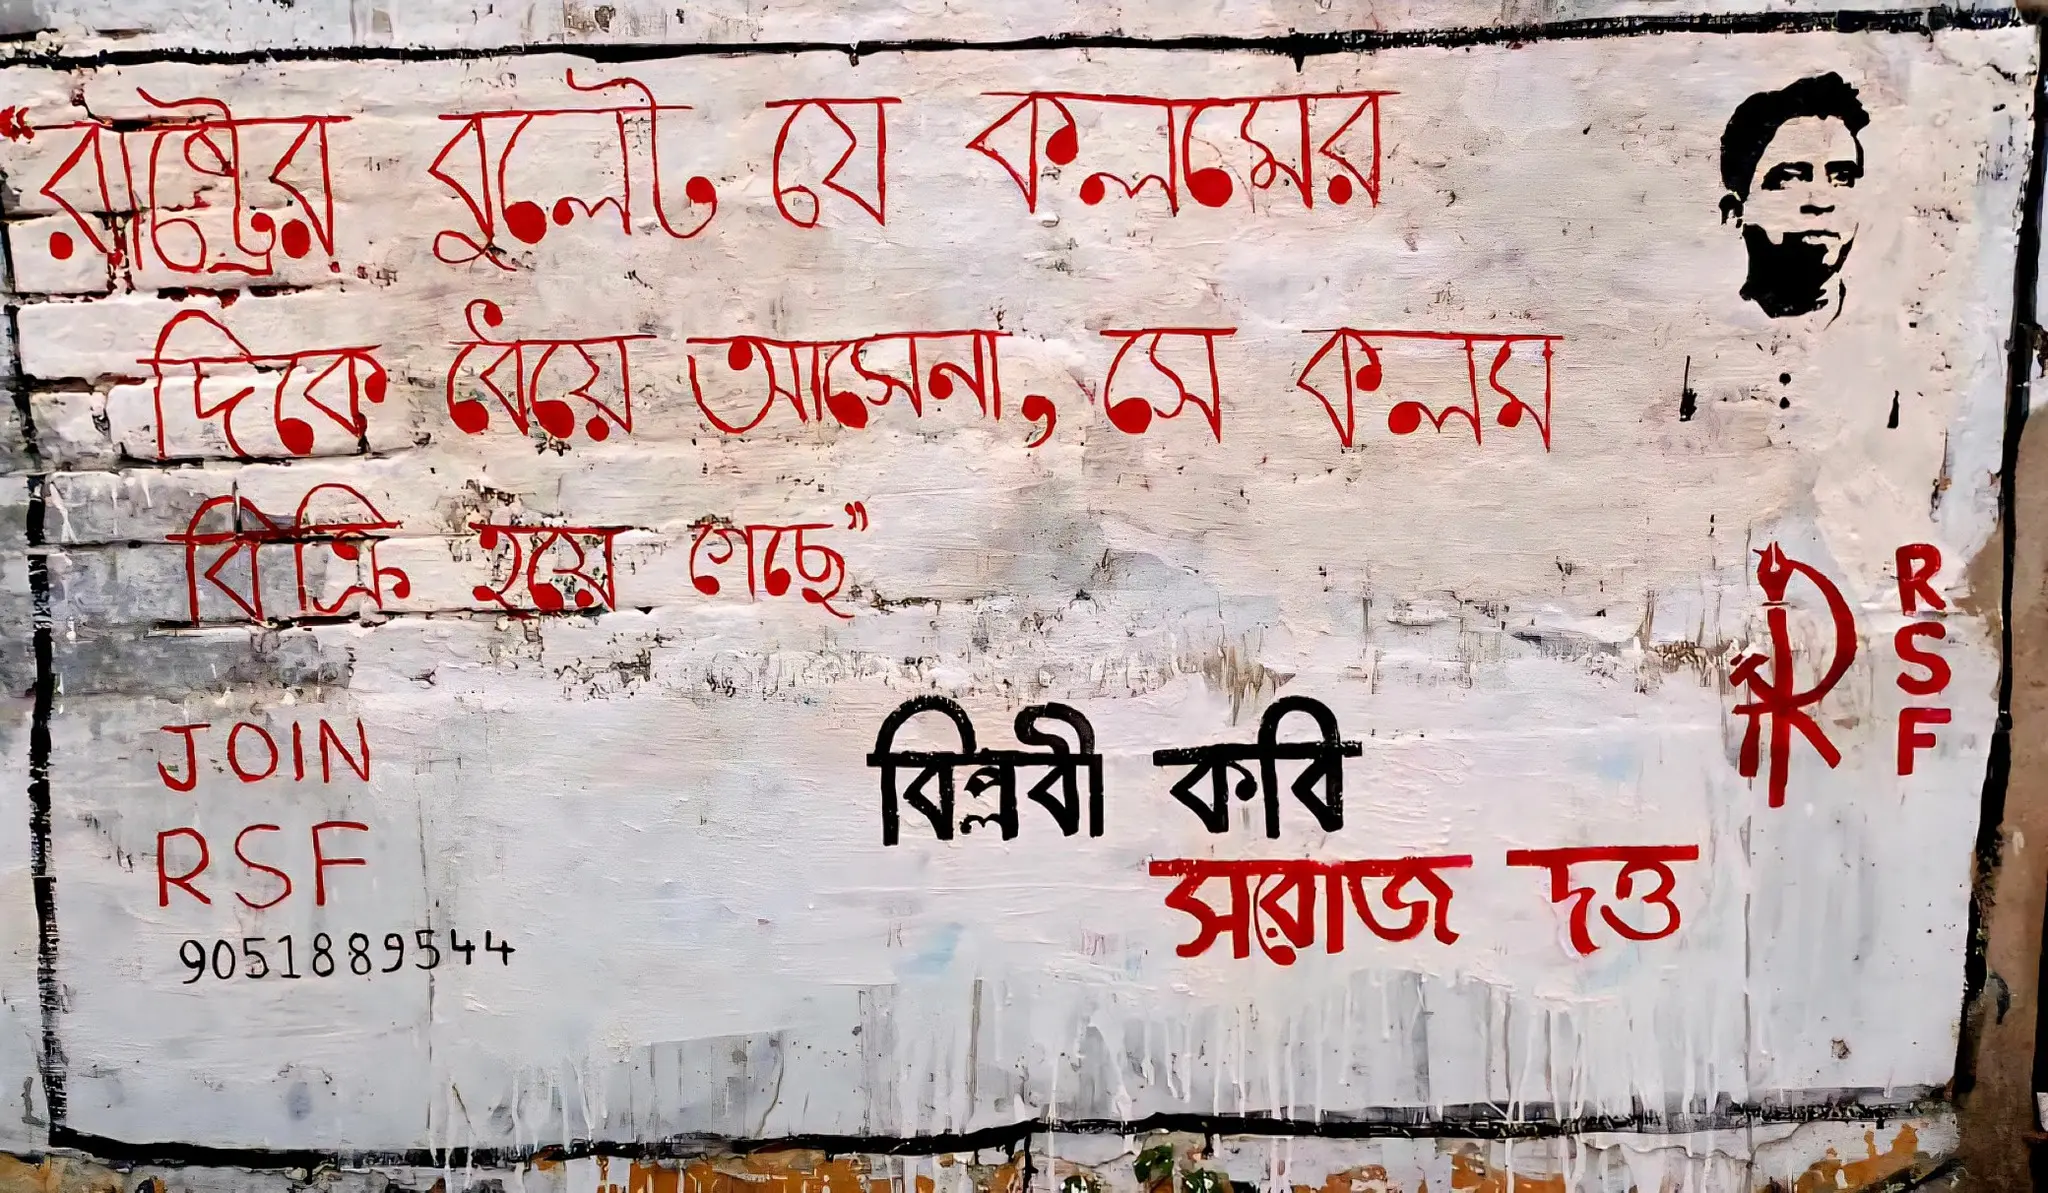 “রাষ্ট্রের বুলেট যে কলমের
দিকে ধেঁয়ে আসেনা, সে কলম
বিক্রি হয়ে গেছে”
RSF
JOIN
RSF
9051889544
বিপ্লবী কবি
সরোজ দত্ত